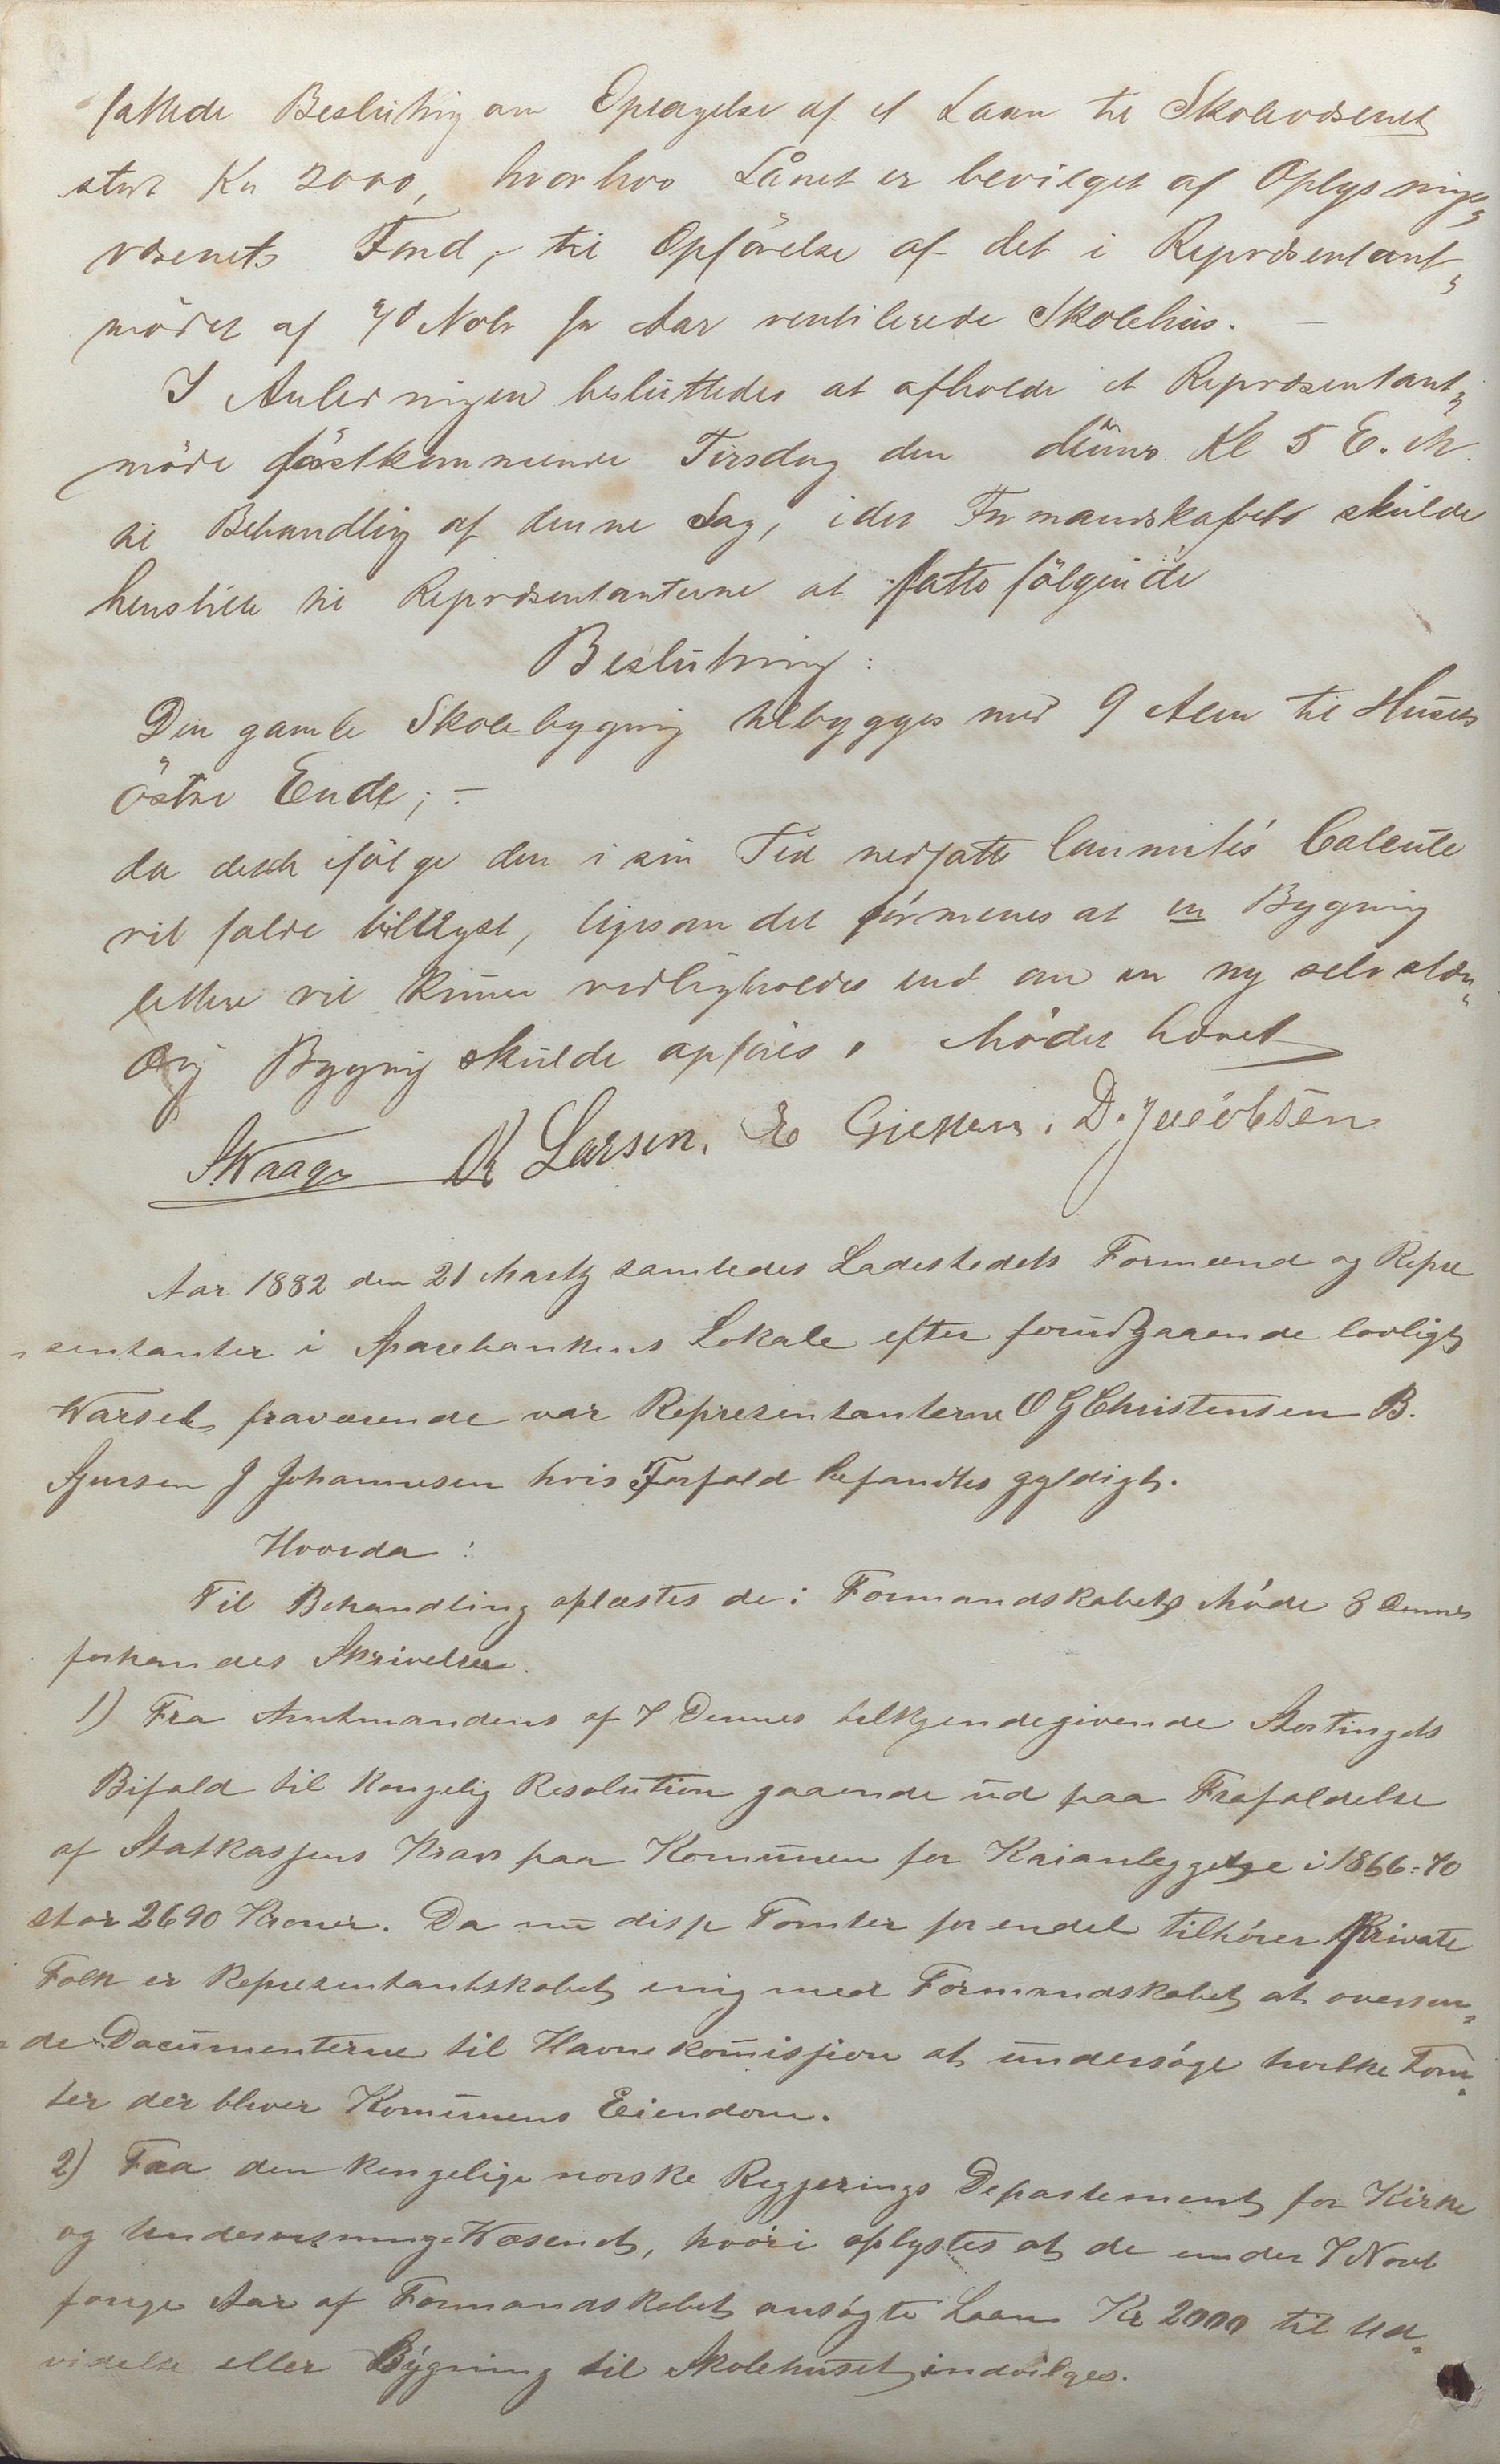 fattede Beslutnig om Optagelse af et Laan til Skolevæsenet
stort Kr 2000, hvorhos Lånet er bevilget af Oplysnings„
væsenets Fond, – til Opförelse af det i Repræsentant„
mödet af 7d Nobr f. Aar ventilerede Skolehus. –
I Anledningen besluttedes at afholde et Repræsentant„
möde förstkommende Tirsdag den dennes Kl 5 E. M.
til Behandlig af denne Sag, idet Formandskabet skulde
henstille til Repræsentanterne at fatte fölgende
Beslutning:
Den gamle Skolebygnig tilbygges med 9 Alen til Husets
östre Ende; –
da dette ifölge den i sin Tid nedsatte Commités Calcule
vil falde billigst, ligesom det förmenes at en Bygning
lettere vil kunne vedligeholdes end om en ny selvstæn„
dig Bygnig skulde opföres. Mödet hævet
S Waage K Larsen. E Gjettsen. D. Jacobsen
Aar 1882 den 21 Martz samledes Ladestedets Formænd og Repre
„sentanter i Sparebankens Lokale efter forudgaaende lovligt
Warsel, fraværende var Representanterne O G Christensen B.
Sjursen J Johannesen hvis Forfald befandtes gyldigt.
Hvorda:
Til Behandling oplæstes de i Formandskabets Möde 8 Dennes
forhandles Skrivelser.
1) Fra Amtmandens af 7 Dennes tilkjendegivende Stortingets
Bifald til Kongelig Resolution gaaende ud paa Frafaldelse
af Statkassens Krav paa Komunen for Kaianleggelse i 1866-70
stor 2690 Kroner. Da nu disse Tomter for endel tilhörer Private
Folk er Representantskabet enig med Formandskabet at oversen„
„de Documenterne til Havnekomissjon at undersöge hvilke Tom„
ter der bliver Komunens Eiendom.
2) Fra den kongelige norske Regjerings Departement for Kirke
og UndervisningsWæsenet, hvori oplystes at de under 7 Novb
forige Aar af Formandskabet ansögte Laan Kr 2000 til Ud„
videlse eller Bygning til Skolehuset indvilges.